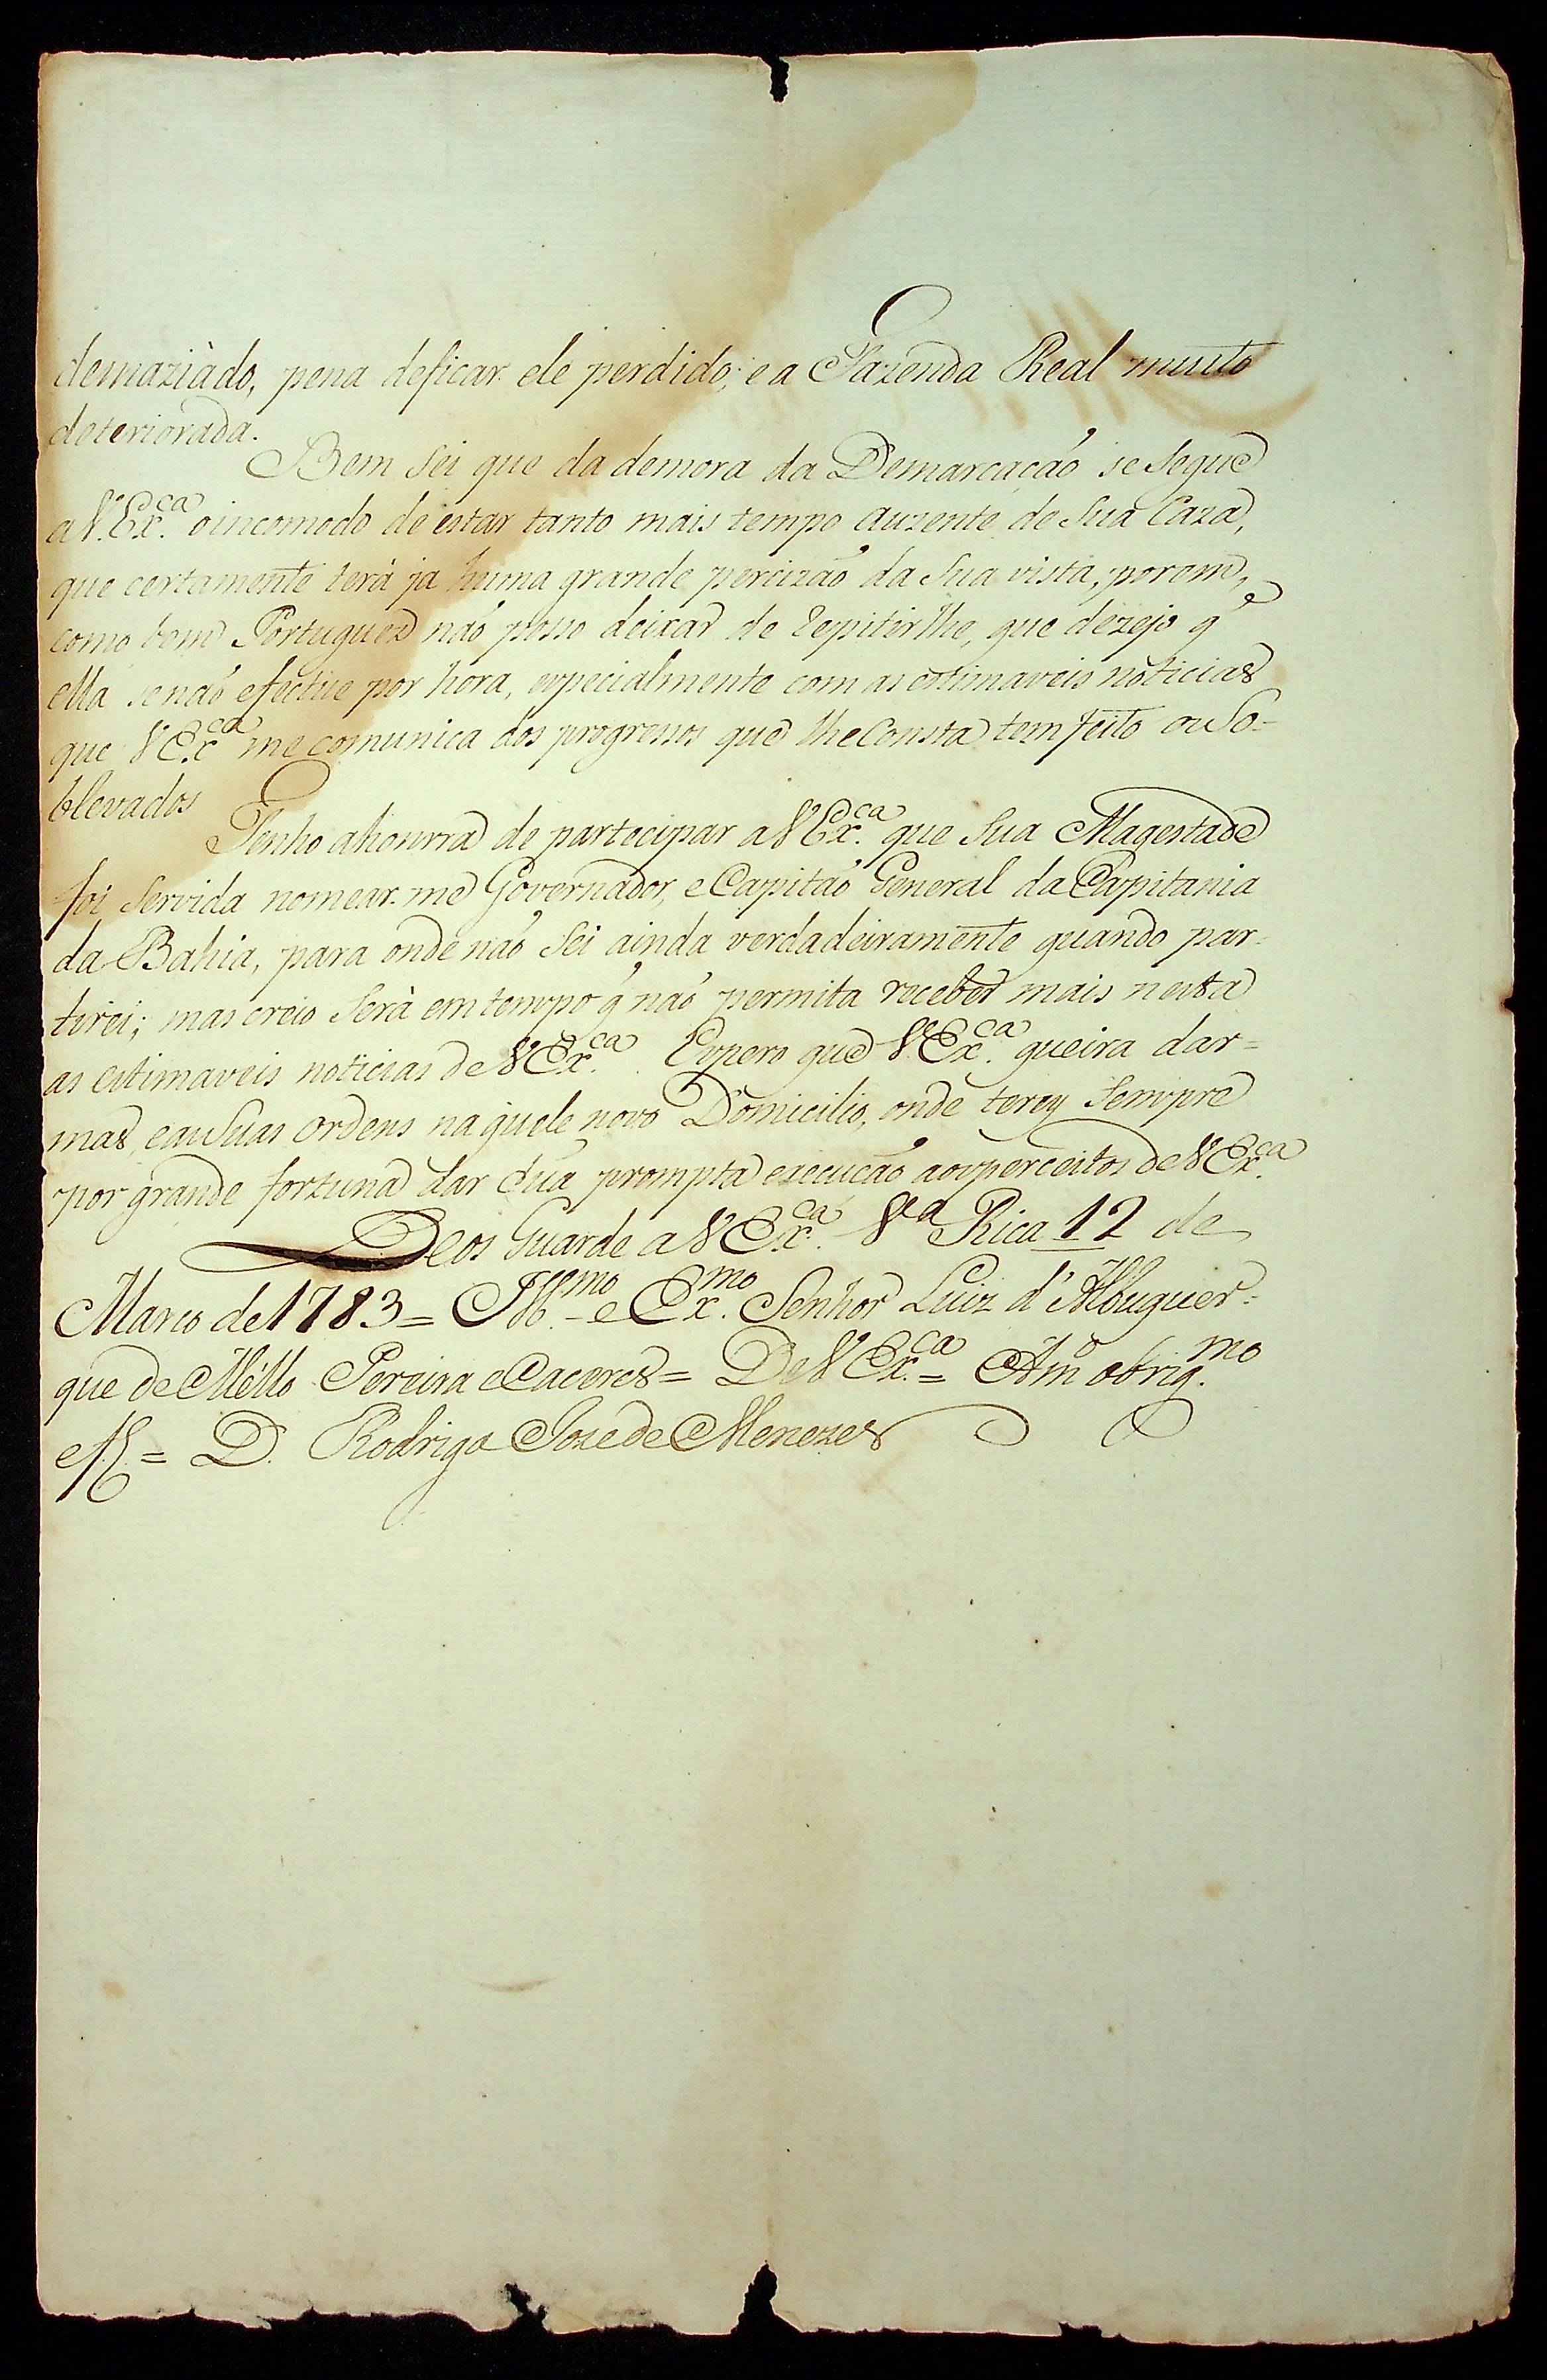 demaziàdo, pena deficar ele perdido; e a Fazenda Real muito
deteriorada.
Bem Sei que da demora da Demarcaçaõ se Segue
a V. Ex.ca oincomodo de estar tanto mais tempo auzente de Sua Caza,
que certamente terà ja huma grande percizaõ da Sua vista, porem,
como bom Portuguez naõ posso deixar de repitirlhe, que dezejo q̃
ella senaõ efective por hora, especialmente com as estimaveis noticias
que V Ex.ca me comunica dos progressos que lheConsta tem feito os So=
blevados
Tenho ahonrra de partecipar a V Ex.ca que Sua Magestade
foi Servida nomear-me Governador, e Capitaõ General da Capitania
da Bahia, para onde naõ Sei ainda verdadeiramente quando par=
tirei; mas creio Serà em tempo q̃ naõ permita receber mais nesta
as estimaveis noticias de V Ex.ca. Espero que V. Ex.ca queira dar=
mas, e as Suas ordens naquele novo Domicilio, onde terey Sempre
por grande fortuna dar Sua prompta execuçaõ aos perceitos de V Ex.ca
Deos Guarde a V Ex.ca V.a Rica 12 de
Marco de 1783 = Ill.mo e Ex.mo Senhor Luiz d'Albuquer=
que de Mello Pereira e Caceres = De V Ex.ca = Am.o obrig.mo
= D. Rodrigo Joze de Menezes